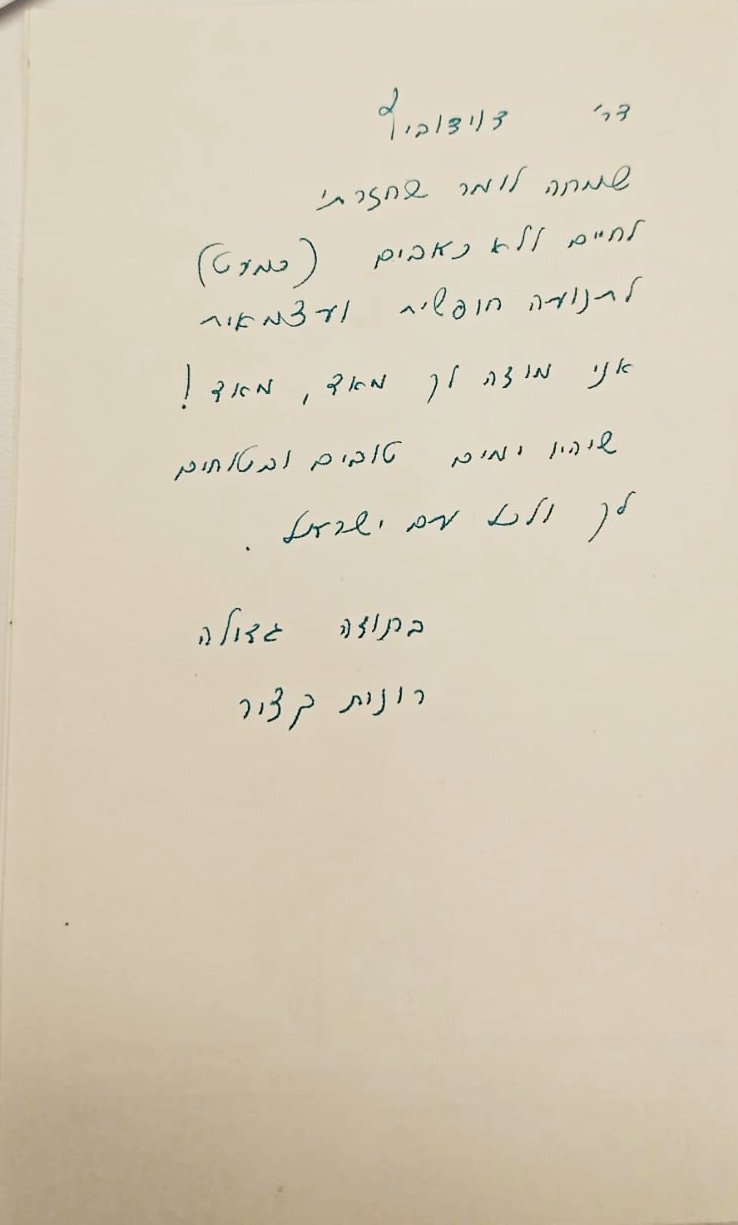 דר' דוידוביץ
שמחה לומר שחזרתי
לחיים ללא כאבים (כמעט)
לתנועה חופשית ועצמאית
אני מודה לך מאד, מאד!
שיהיו ימים טובים ובטוחים
לך ולכל עם ישראל.
בתודה גדולה
רונית קציר